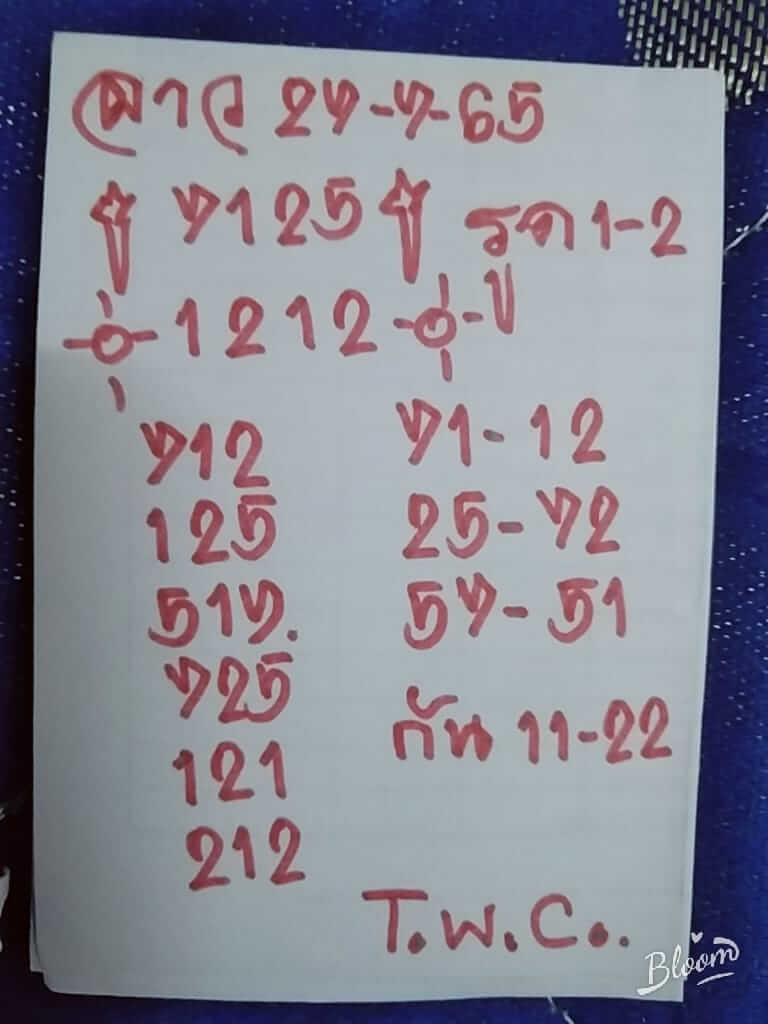 ลาว 27-7-65
7125 รูด 1-2
1212 - ปู
712 71-12
125 25-72
517. 57-51
725
กัน 11-22
121
212
T.W.C..
Bloom